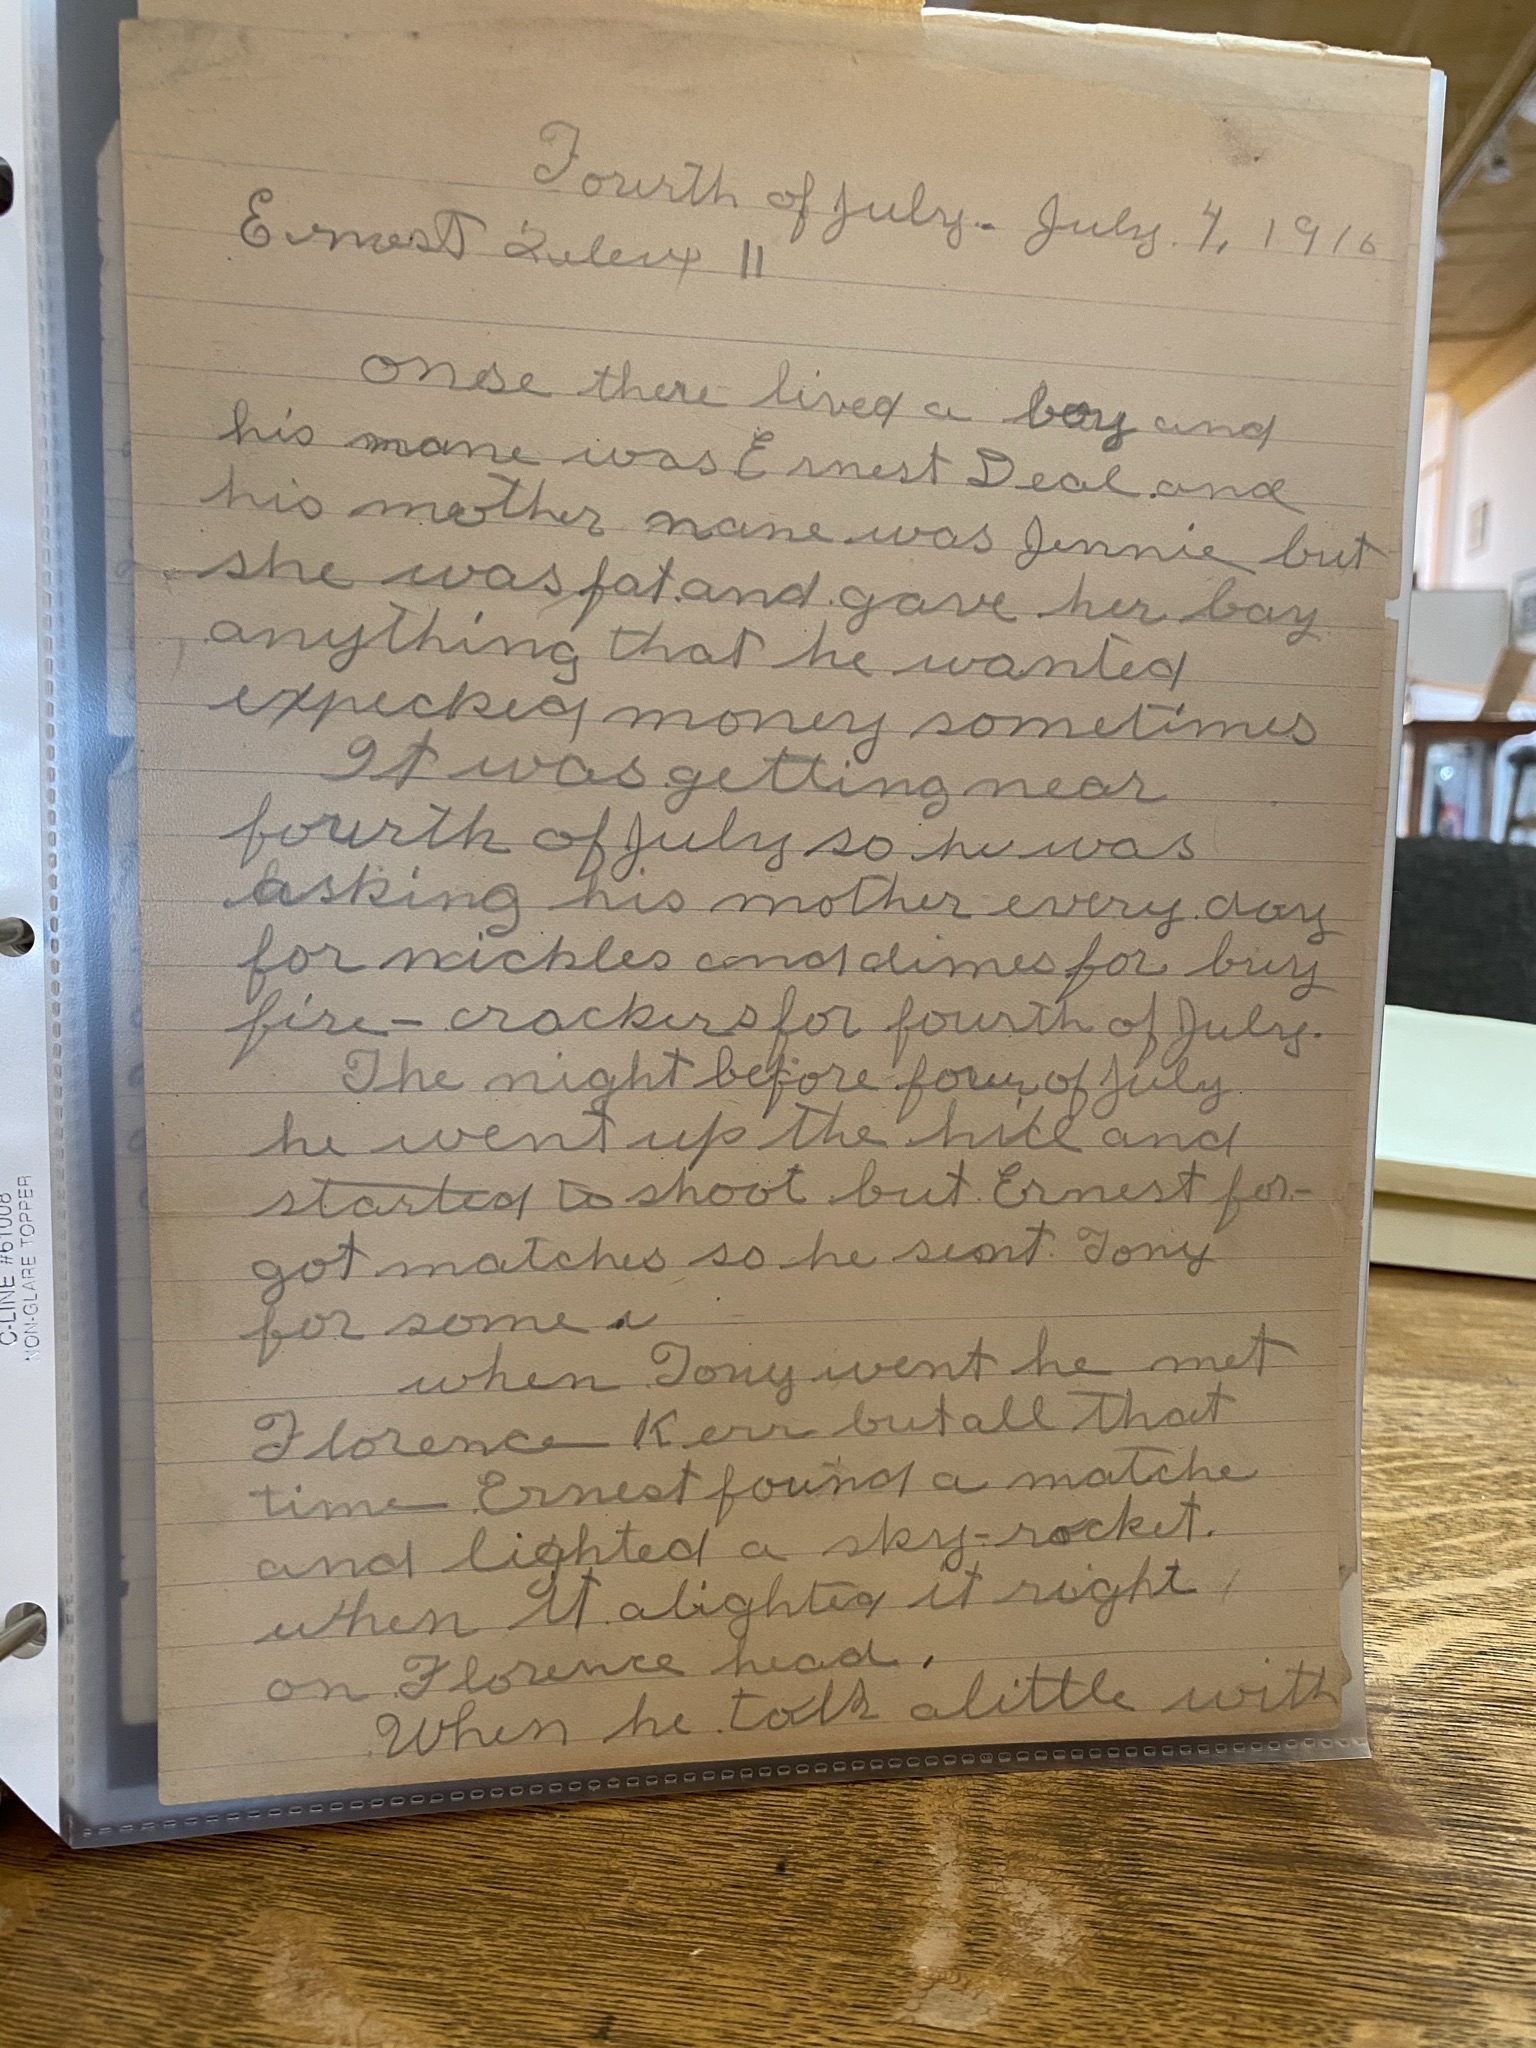 Fourth of July. July. 4, 1916
Ernest II
onese there lived a boy and
his mane was Ernest Deal and
his mother nane was Jennie but
she was fat and gave her bay
anything that he wanted
expecked money sometimes
It was getting near
fourth of July so he was
asking his mother every day
for nickles and dimes for buy
fire-crackers for fourth of July.
The night before four of July
he went up the hill and
started to shoot but Ernest for-
got matches so he sent Tony
for some
when Tony went he met
Florence Kerr but all that
time Ernest found a matche
and lighted a sky-rocket.
when It alighted it right
on Florence head.
When he talk alittle with
C-LINE #61008
NON-GLARE TOPPER